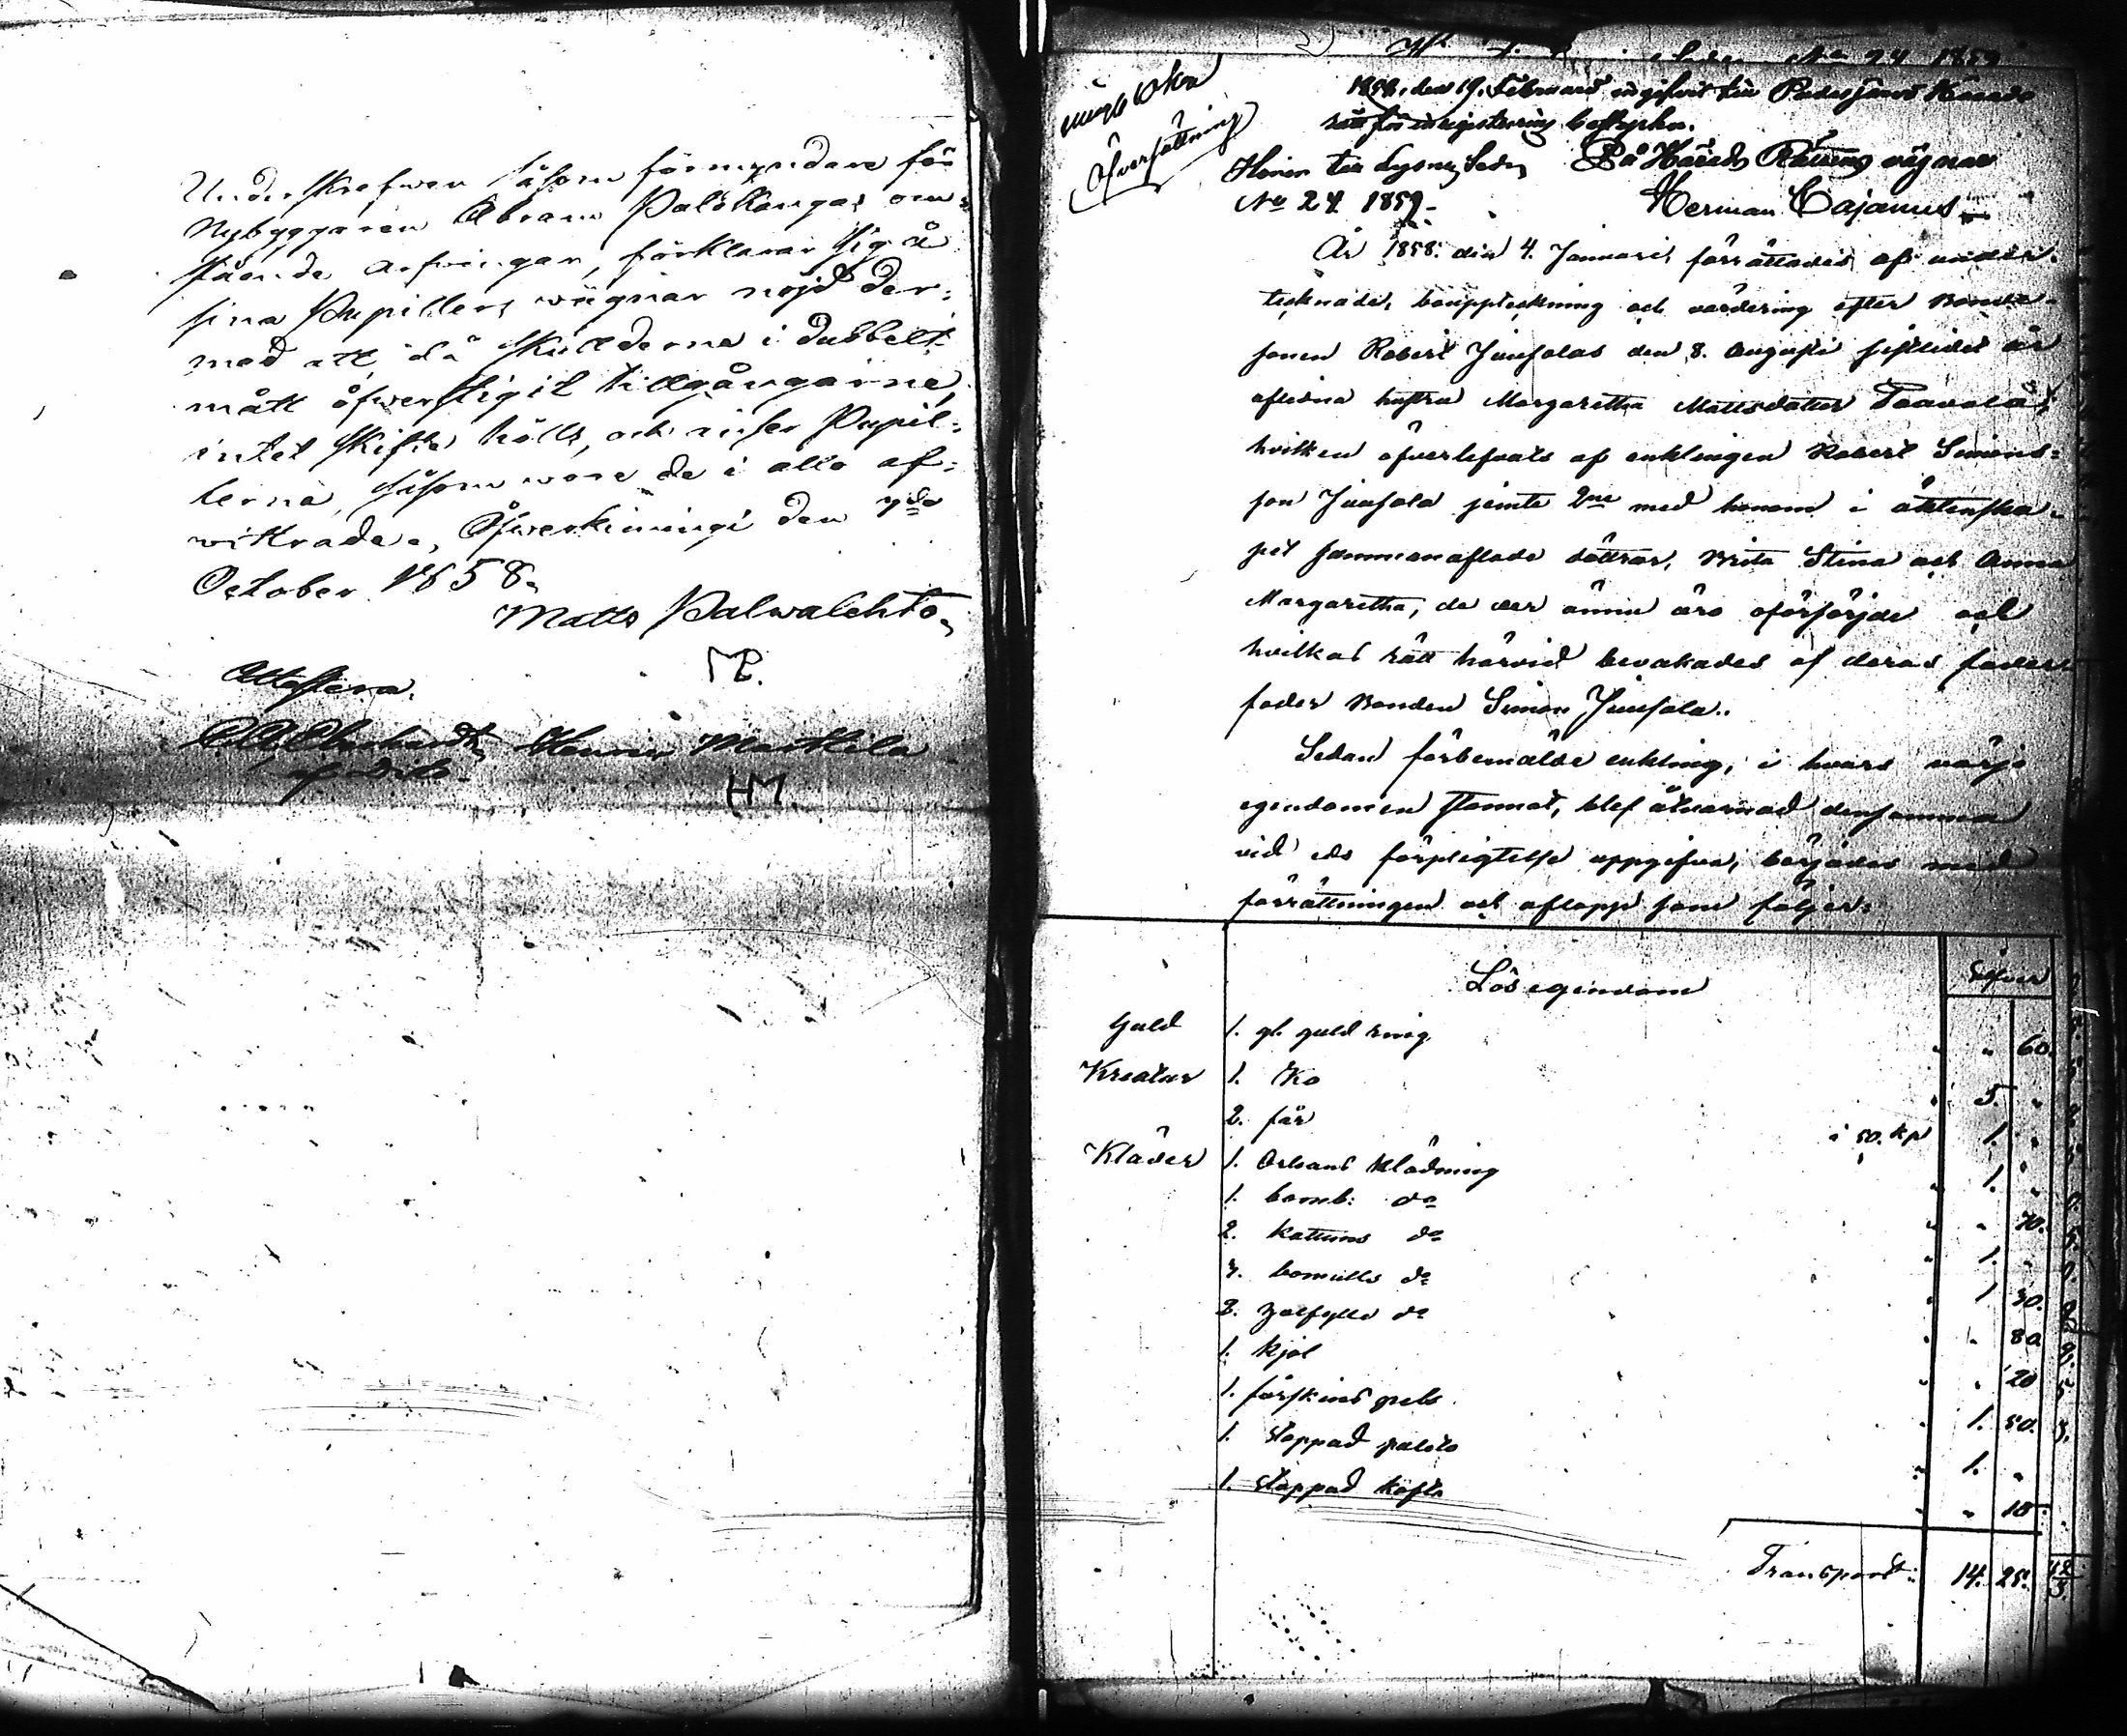 Underskrefwen såsom förmyndare för
Nybyggaren Abram Palokangas om=
stående arfwingar, förklarar sig å
sina Pupillers wägnar nöjd der=
med att, då skulderne i dubbelt
mått öfwerstigit tillgångarne,
intet skifte hålls, och anser Pupil=
lerna, såsom wore de i allo af=
wittrade. Öfwerkiimingi den 7de
October 1858.
Matts Palwalehto
MP.
Attestera.
Henric Markkila
HM.
No 24 1859
Öfversättning
1859, den 19. Februari ingifvit till Pudasjärvi Härads
rätt för inregistrering betyghar.
Hörer till Lysning Sed. På Härads Rättens vägnar
No 24 1859. Herman Cajanus
År 1858. den 4. Januari förrättades af under=
tecknade, bouppteckning och värdering efter Bonde=
sonen Robert Juusolas den 8. Augusti sistlidet år
aflidna hustru Margaretha Mattsdotter Taavola,
hvilken öfverlefvats af enklingen Robert Simons=
son Juusola jemte 2ne med honom i äktenska=
pet sammanaflade döttrar, Brita Stina och Anna
Margaretha, de der ännu äro oförsörjde och
hvilkas rätt härvid bevakades af deras fader
fader Bonden Simon Juusola.
Sedan förbemälde enkling, i hvars värjo
egendomen stannat, blef åtvarnad densamma
vid eds förpligtelse uppgifva, börjades med
förrättningen och aflopp som följer:
Lösegendom Silfver
Guld 1. gl. guld ring " " 60.
Kreatur 1. Ko " 5. "
2. får i 50. kp 1. "
Kläder 1. Orleans klädning " 1. "
1. bomb: do " " 70.
2. kattuns do " 1. "
3. bomulls do " 1 30.
2. halfylle do " " 80
1. kjol " " 20
1. fårskins pels " 1. 50.
1. stoppad paleto " 1. "
1. stoppad kofta " " 15
Transport: 14. 25.